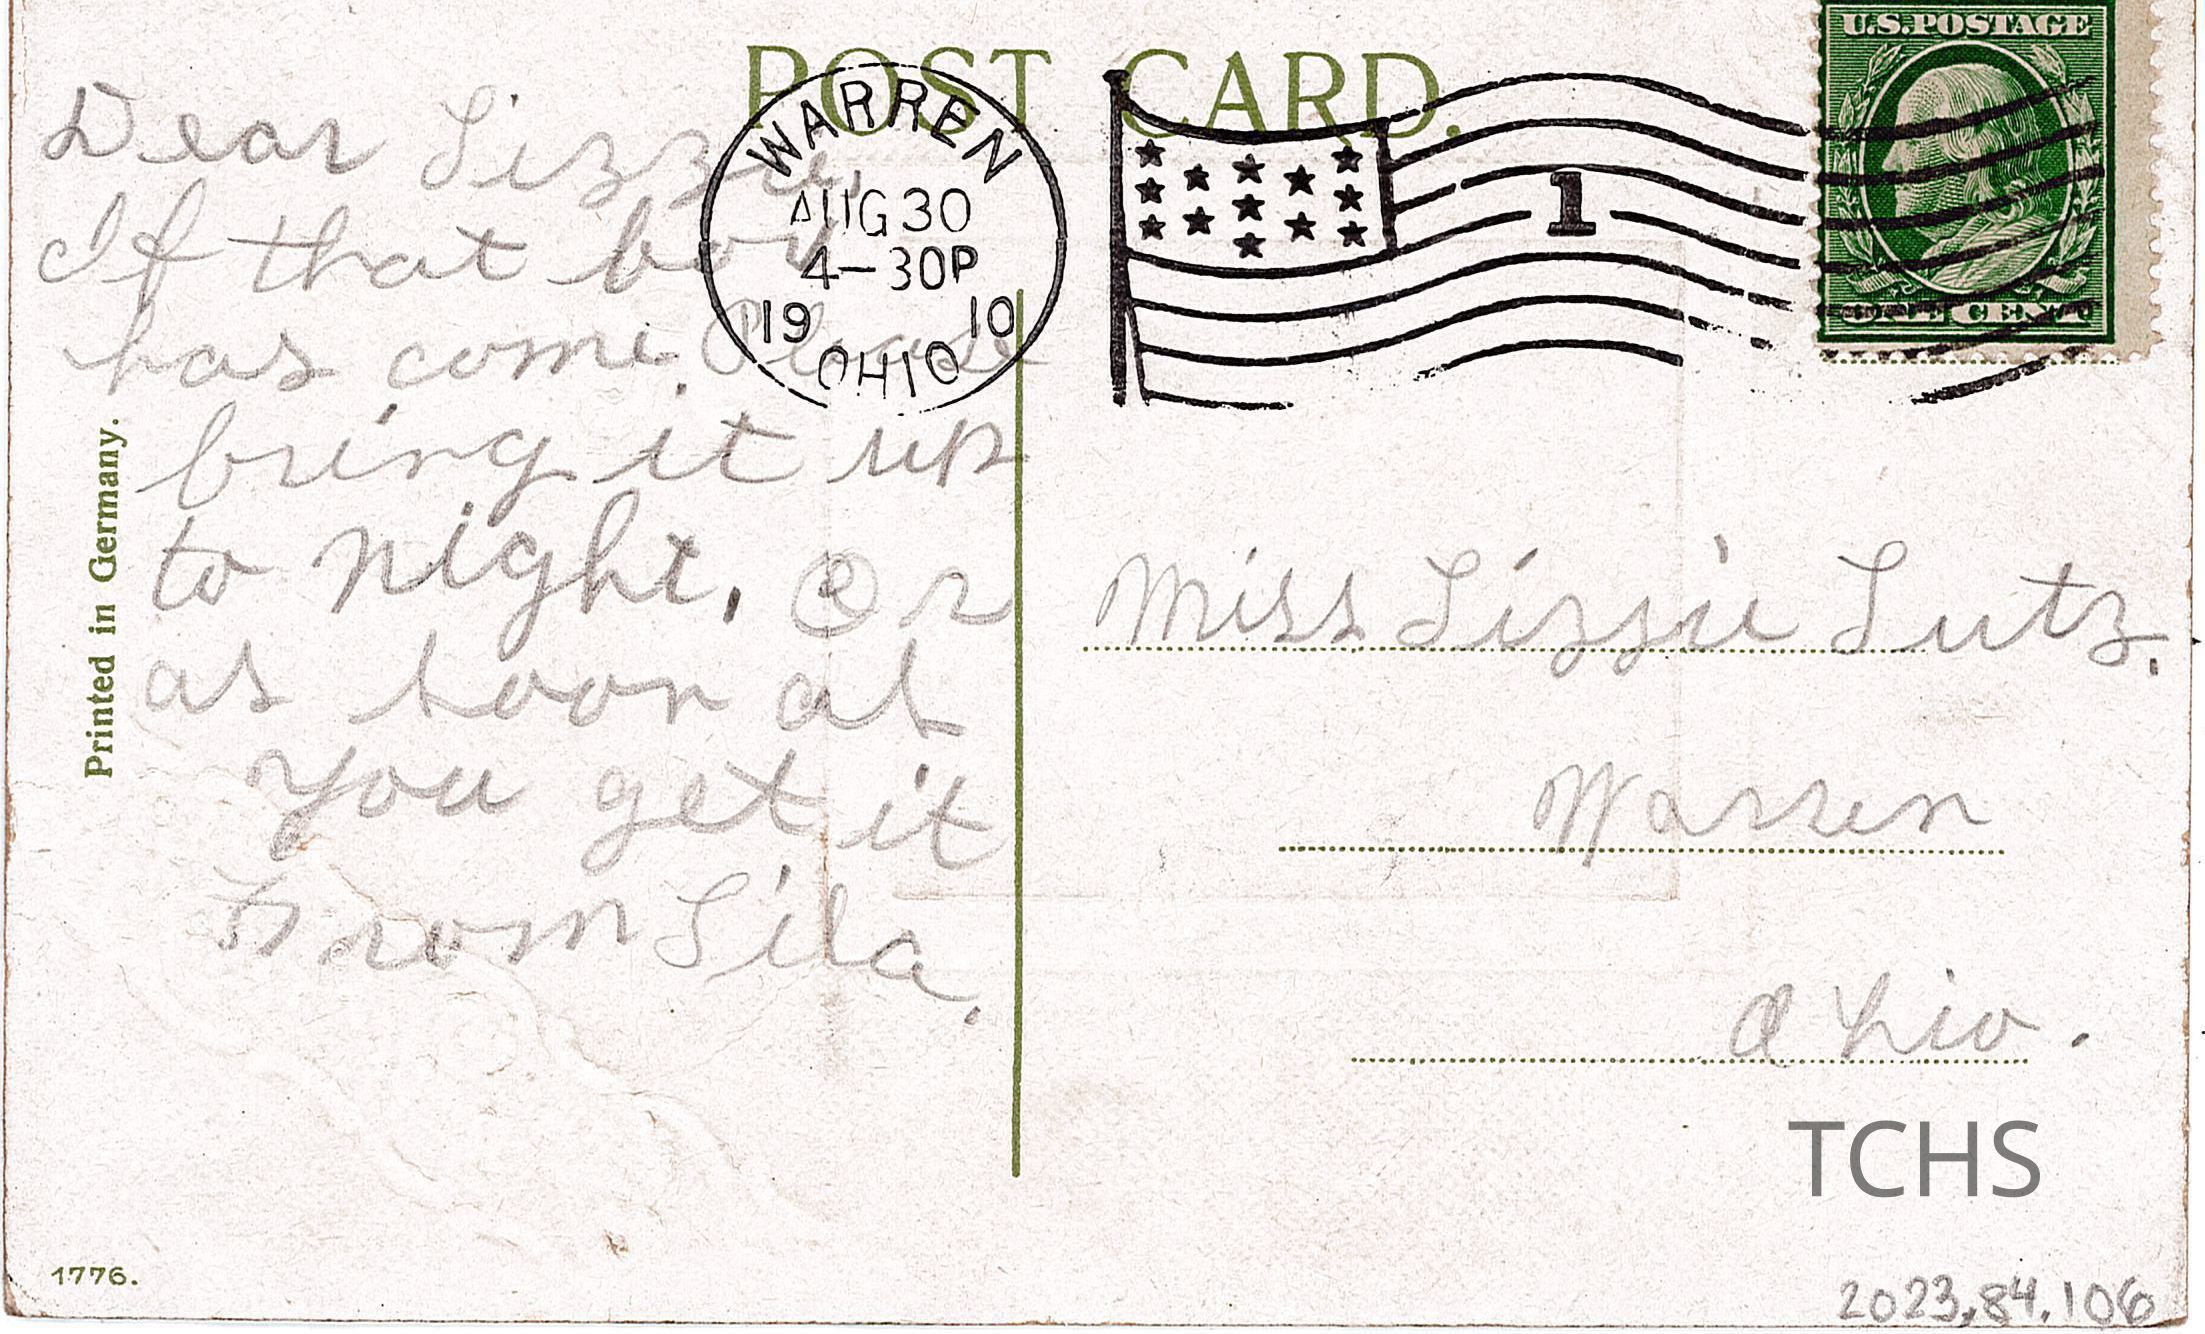 POST CARD.
U.S. POSTAGE
ONE CENT
WARREN
AUG 30
4-30P
1910
OHIO
1
Dear Lizzie,
If that boy
has come. Please
bring it up
to night. Or
as soon as
you get it
From Lila.
Printed in Germany.
Miss Lizzie Lutz.
Warren
Ohio.
TCHS
1776.
2023.84.106